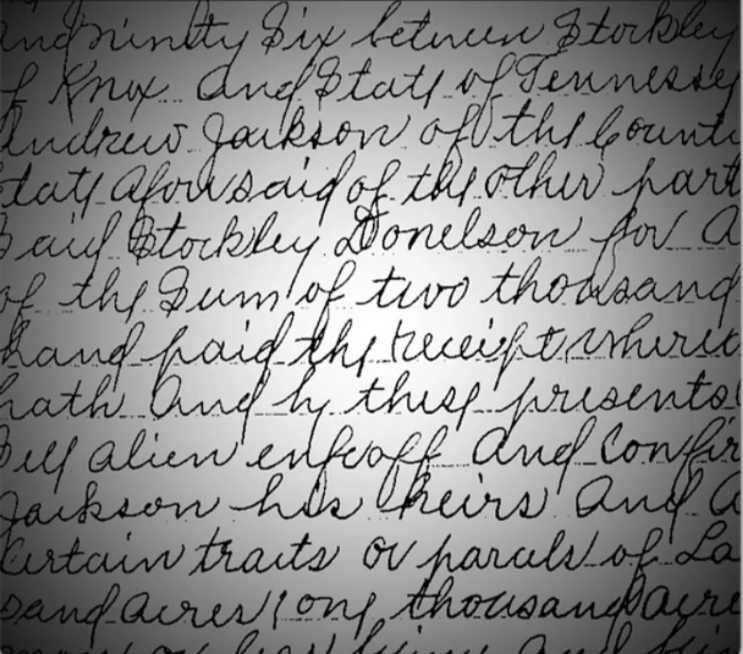 and ninety Six between Stockley
of Knox and State of Tennessey
Andrew Jackson of the Count
State aforesaid of the other part
Said Stockley Donelson for a
of the Sum of two thousand
hand paid the receipt where
hath and by these presents
Sell alien enfeoff and confir
Jackson his heirs and a
Certain tracts or parcels of La
sand acres one thousand acre
more or less and